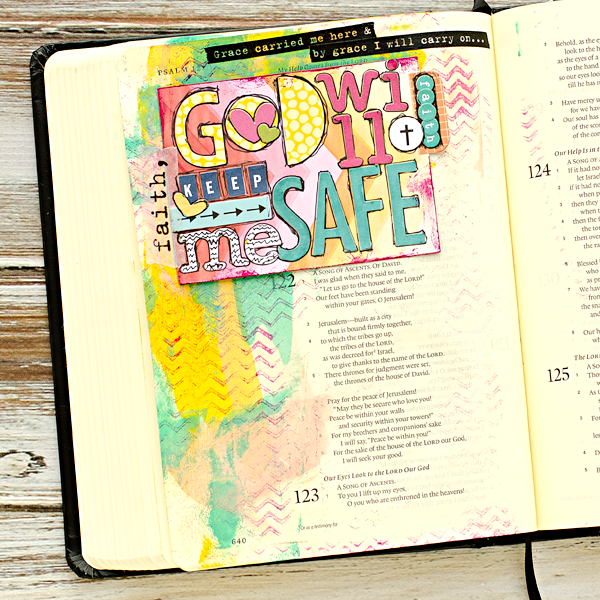 Grace carried me here &
by grace I will carry on...
PSALM 12
My Help Comes from the LORD
GOD will
faith
faith,
KEEP
me SAFE
122
A SONG OF ASCENTS. OF DAVID.
1 I was glad when they said to me,
"Let us go to the house of the LORD!"
2 Our feet have been standing
within your gates, O Jerusalem!
3 Jerusalem—built as a city
that is bound firmly together,
4 to which the tribes go up,
the tribes of the LORD,
as was decreed for Israel,
to give thanks to the name of the LORD.
5 There thrones for judgment were set,
the thrones of the house of David.
6 Pray for the peace of Jerusalem!
"May they be secure who love you!
7 Peace be within your walls
and security within your towers!"
8 For my brothers and companions' sake
I will say, "Peace be within you!"
9 For the sake of the house of the LORD our God,
I will seek your good.
Our Eyes Look to the LORD Our God
123
A SONG OF ASCENTS.
1 To you I lift up my eyes,
O you who are enthroned in the heavens!
Or as a testimony for
640
2 Behold, as the
look to the h
as the eyes of a
to the hand
so our eyes loo
till he has m
3 Have mercy u
for we have
4 Our soul has
of the sco
of the con
Our Help Is in t
124
A SONG OF A
1 If it had not
let Israel
2 if it had not
when p
3 then they
when
4 then the f
the to
5 then over
the ra
6 Blessed
who
as p
7 We have
from
the sna
and
8 Our
w
The LORD
125
A SO
1 Thos
2 As t
s
3 For
4 D
5 B